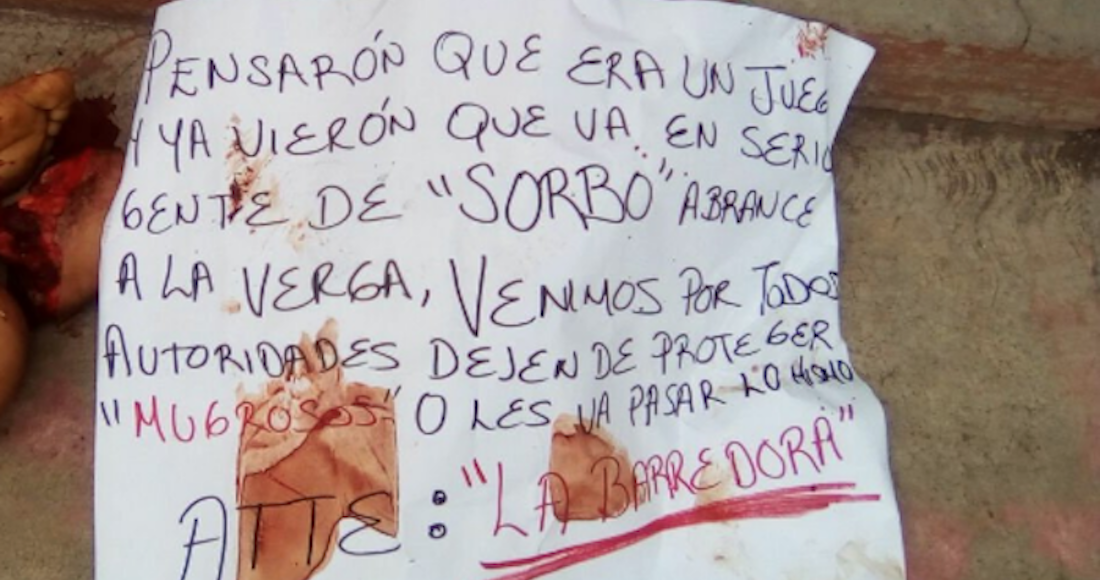 PENSARÓN QUE ERA UN JUEG
Y YA VIERÓN QUE VA. EN SERIO
GENTE DE "SORBO" ABRANCE
A LA VERGA, VENIMOS POR TODOS
AUTORIDADES DEJEN DE PROTEGER
"MUGROSOS" O LES VA PASAR LO MISMO
ATTE: "LA BARREDORA"